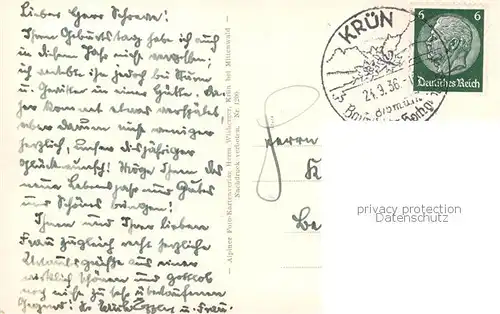 Lieber Herr Schramm!
Ihren Geburtstag habe ich auch
in diesem Jahr nicht vergessen;
ich verlebte ihn jedoch bei Sturm
und Gewitter in einer Hütte. Da-
her kommt etwas verspätet,
aber darum nicht weniger
herzlich, unser diesjähriger
Glückwunsch! Möge Ihnen das
neue Lebensjahr nur Gutes
und Schönes bringen!
Ihnen und Ihrer lieben
Frau zugleich recht herzliche
Urlaubsgrüße aus einer
wirklich schönen und gottlob
noch nicht zu sehr überlaufenen
Gegend! Ihr u. Frau.
Alpiner Foto-Kartenverlag, Herm. Wißberger, Krün bei Mittenwald
Nachdruck verboten. Nr. 1286
KRÜN
24.9.36
6 6
Deutsches Reich
Herrn
privacy protection
Datenschutz